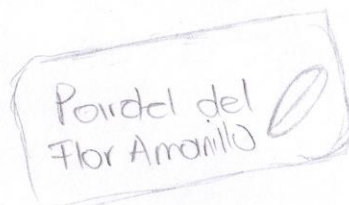 Pairdel del
Flor Amarillo